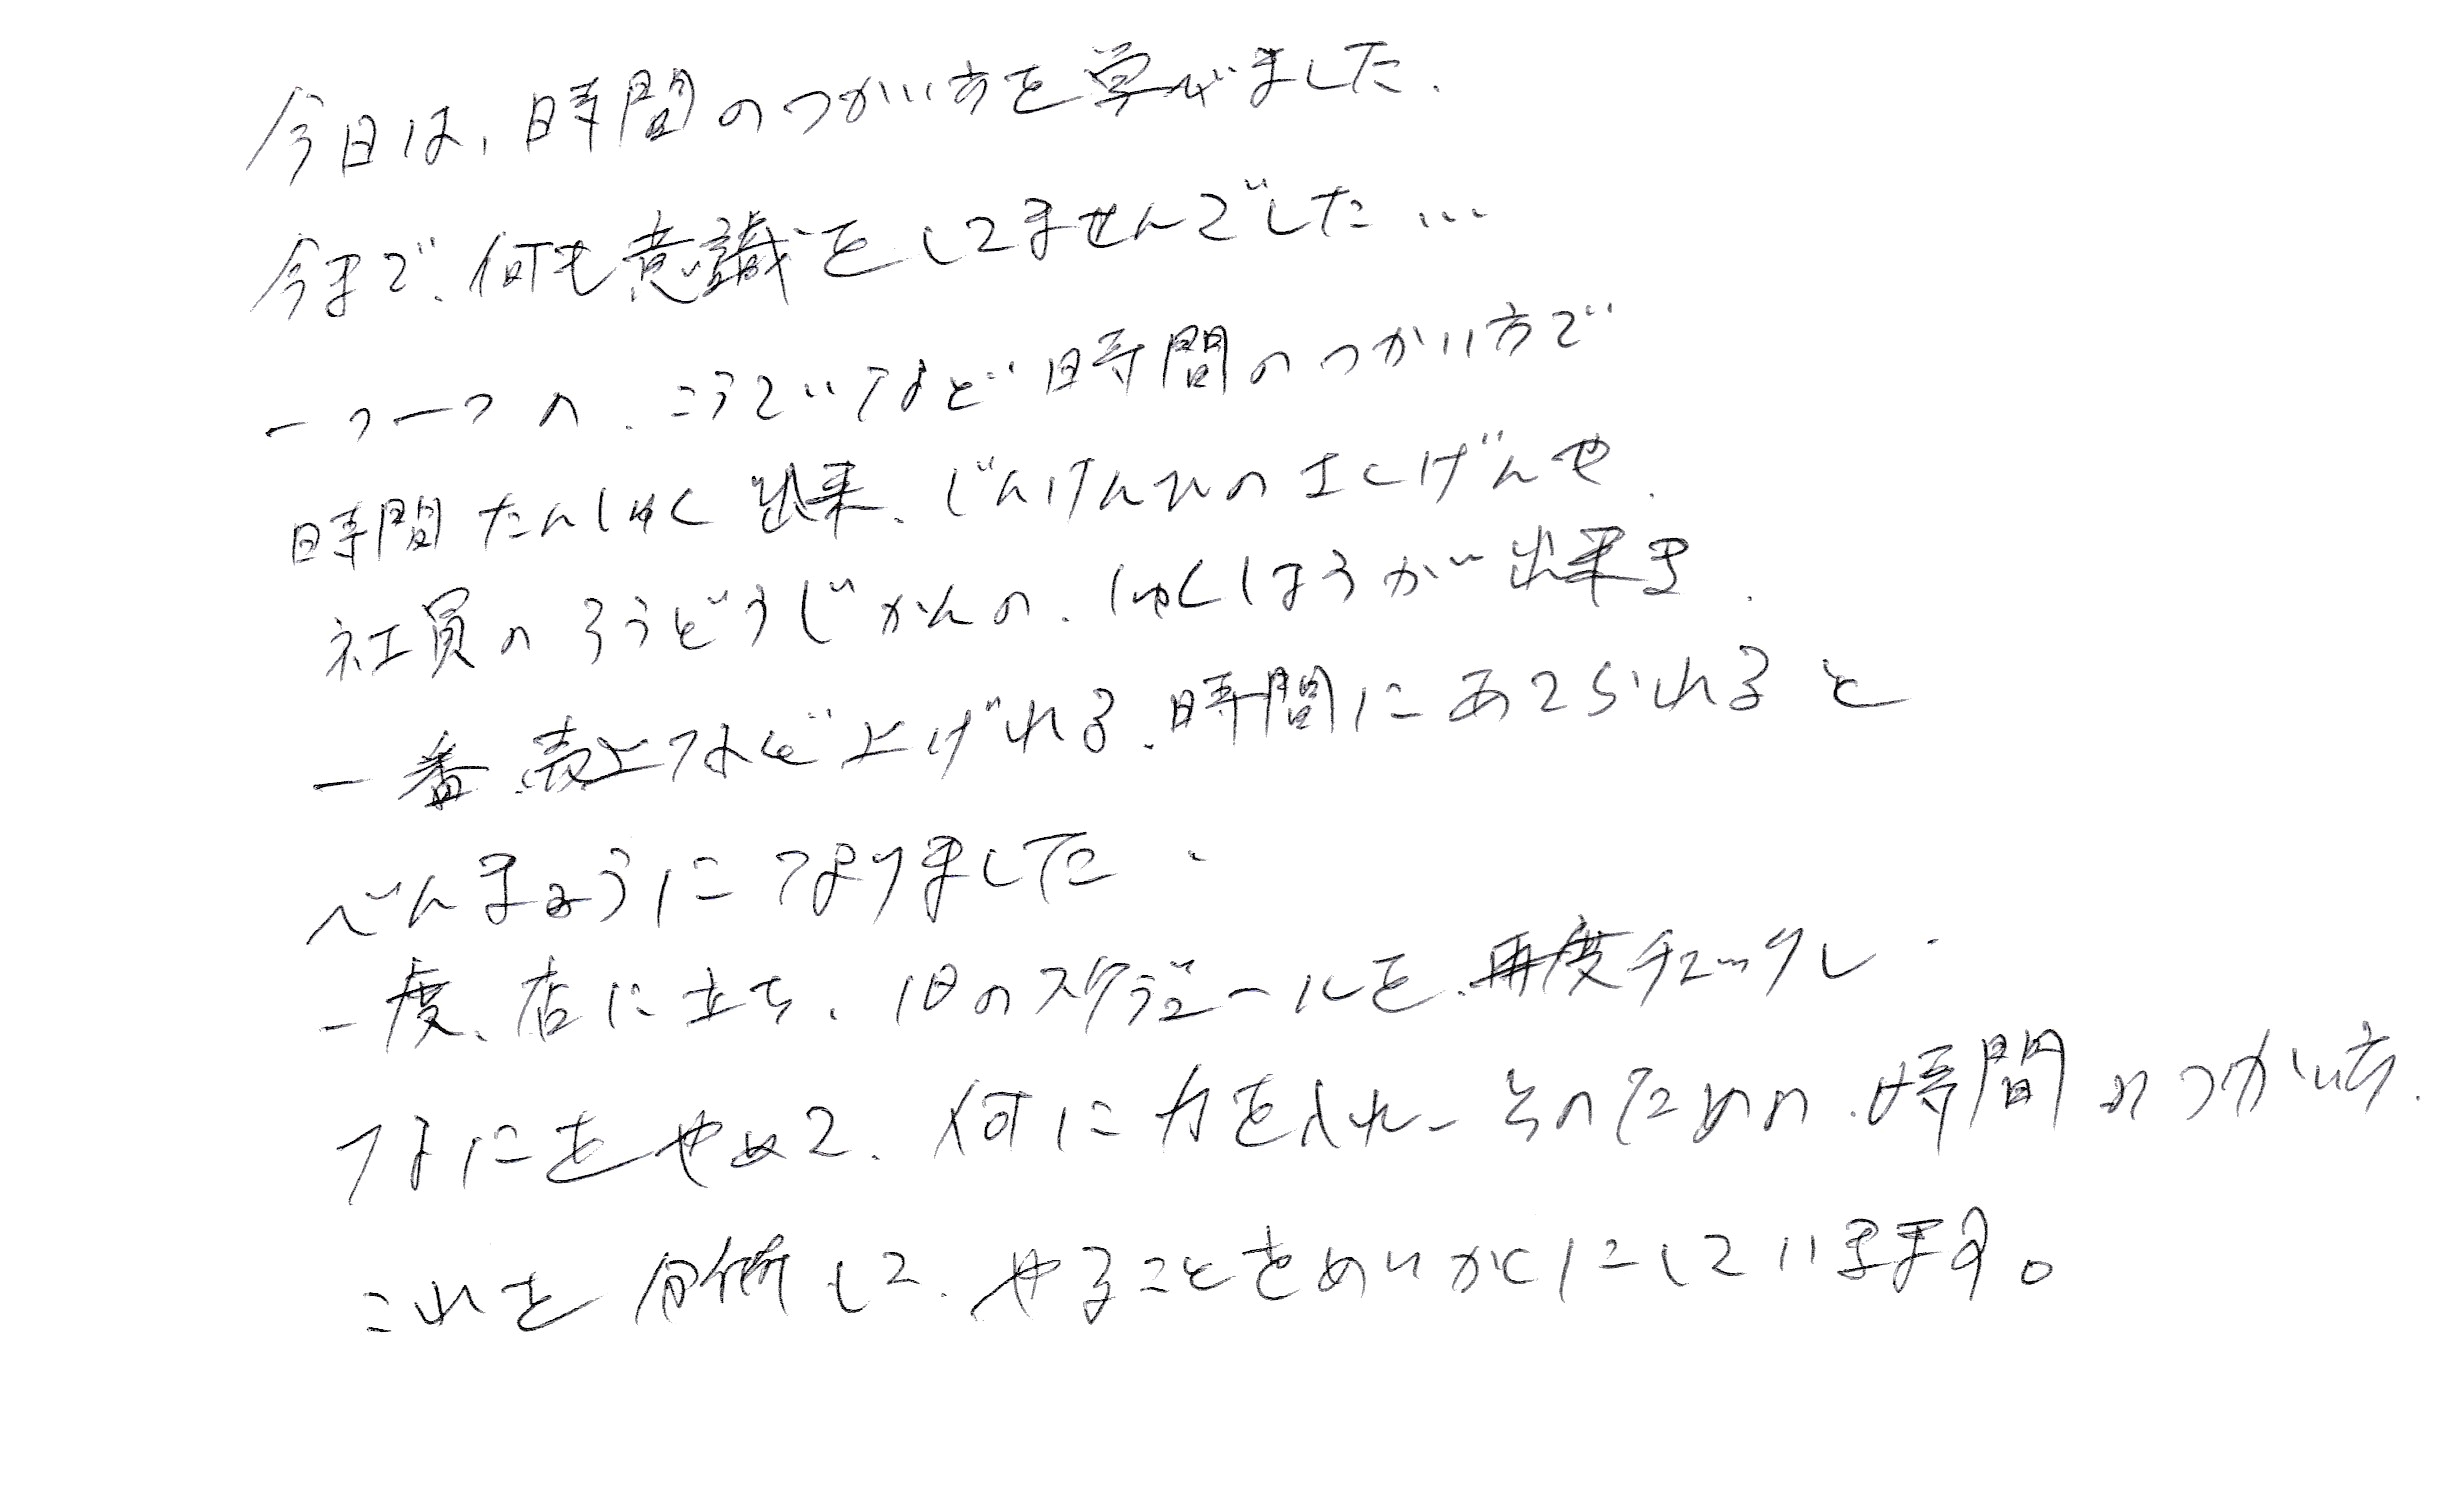 今日は、時間のつかい方を学びました.
今まで、何も意識をしてませんでした…
一つ一つの、こうていなど時間のつかい方で
時間たんしゅく出来、じんけんひのさくげんや、
社員のろうどうじかんの、しゅくしょうが出来ま、
一番、売上などを上げれる、時間にあてられると
べんきょうになりました.
一度、店に立ち、1日のスケジュールを、再度チェックし、
なにをやめて、何に力を入れ、そのための、時間のつかい方、
これを分析して、やることをめいかくにしていきます。